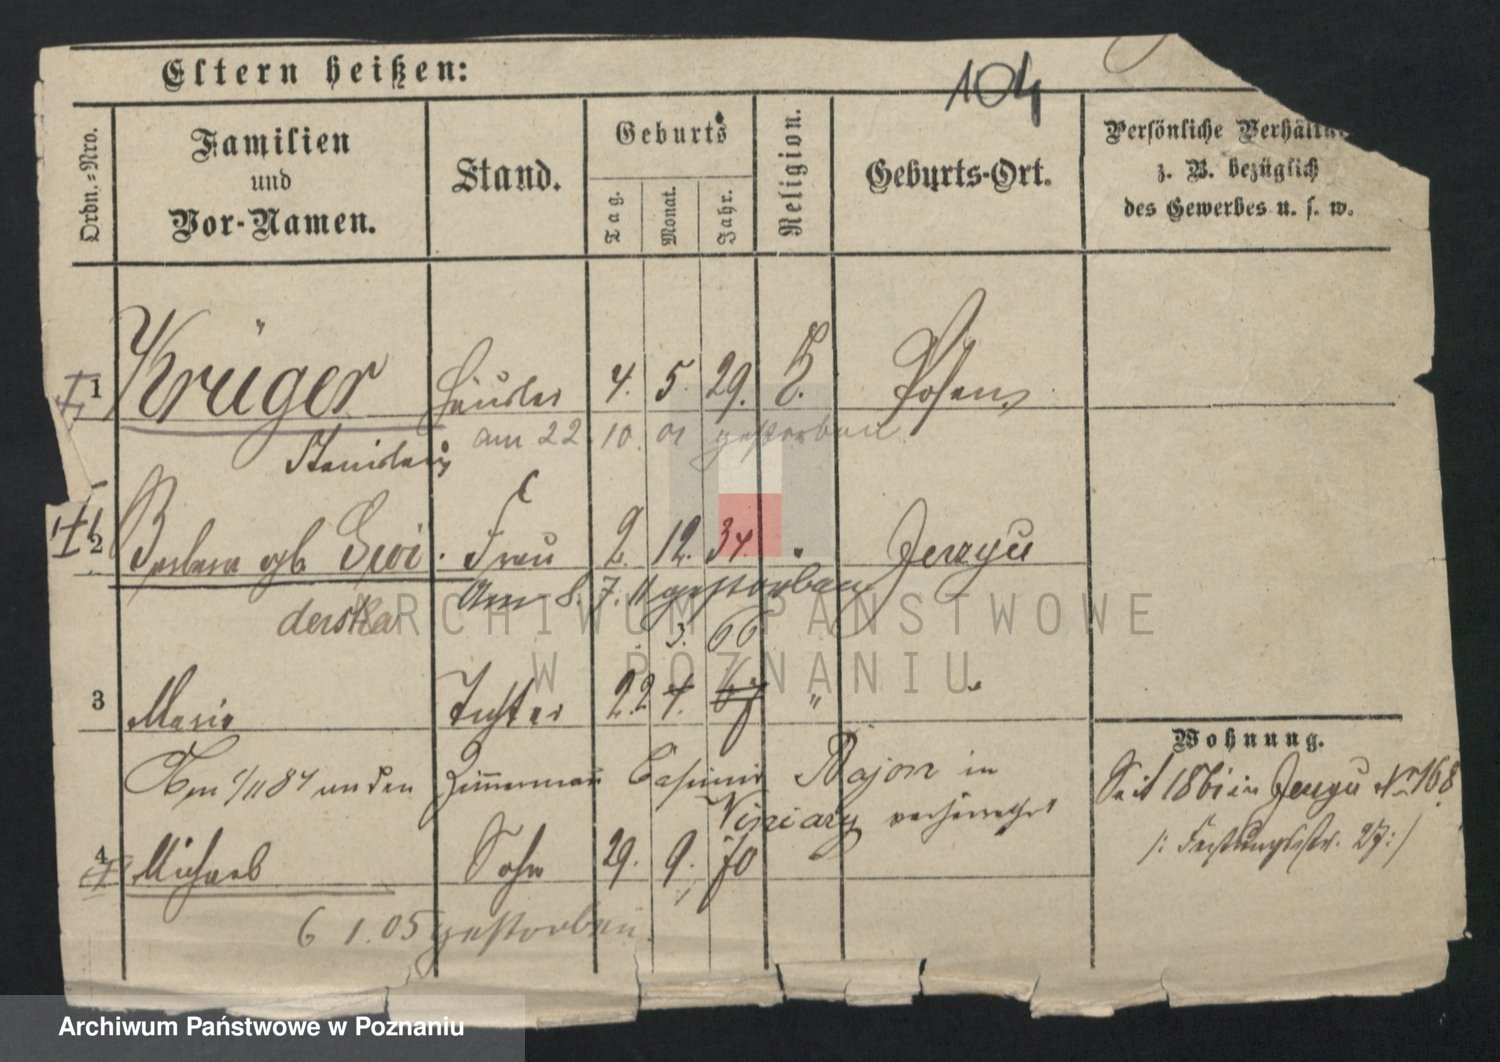 Eltern heißen:
104
Ordn.-Nro.
Familien
und
Vor-Namen.
Stand.
Geburts
Tag.
Monat.
Jahr.
Religion.
Geburts-Ort.
Persönliche
z. B. bezüglich
des Gewerbes u. s. w.
1 Krüger Häusler 4. 5. 29. Posen
Stanislaus am 22. 10. 01 gestorben
2 Barbara gb. Swi Frau 2. 12. 34. " Jerzyce
derska Am 8. 7. 11 gestorben
3. 66
3 Marie Tochter 22 4. 67 " "
Am 1/11 84 an den Zimmermann Casimir Major in
Winiary verheirathet
4 Michael Sohn 29. 9. 70
6 1.05 gestorben.
Wohnung.
Seit 1861 in Jerzyce Nr 168
/: Festungsstr. 27:/
ARCHIWUM PAŃSTWOWE
W POZNANIU
Archiwum Państwowe w Poznaniu